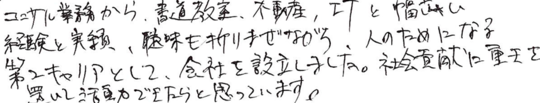 コンサル業務から、書道教室、不動産、ITと幅広い
経験と実績、趣味も折りまぜながら、人のためになる
第2キャリアとして、会社を設立しました。社会貢献に重きを
置いて活動できたらと思っています。